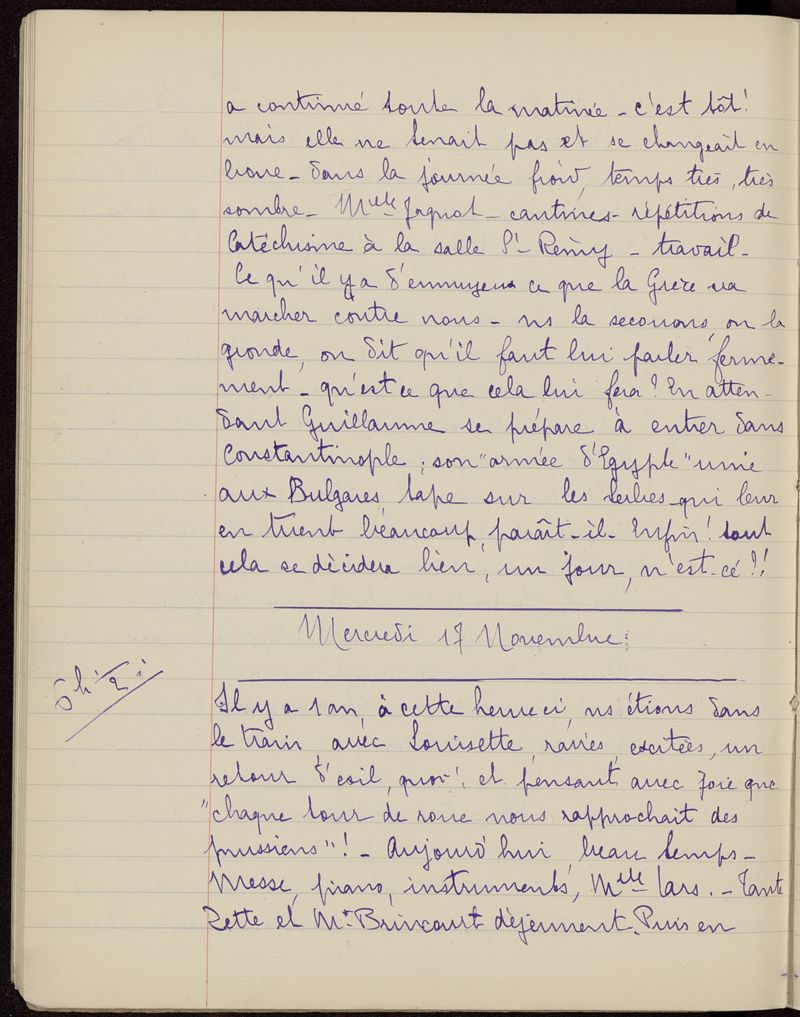 a continué toute la matinée - c'est tôt!
mais elle ne tenait pas et se changeait en
boue - Dans la journée froid, temps très, très
sombre - Melle Jaquot - cantines - répétitions de
Catéchisme à la salle St Rémy - travail -
Ce qu'il y a d'ennuyeux ce que la Grèce va
marcher contre nous - ns la secouons, on la
gronde, on dit qu'il faut lui parler ferme-
ment - qu'est ce que cela lui fera? En atten-
dant Guillaume se prépare à entrer dans
Constantinople; son "armée d'Egypte" unie
aux Bulgares, tape sur les serbes qui leur
en tuent beaucoup, paraît-il - Enfin! tout
cela se décidera bien, un jour, n'est-ce?!
Mercredi 17 Novembre:
5h 1/2:
Il y a 1 an, à cette heure ci, ns étions dans
le train avec Louisette, ravies, excitées, un
retour d'exil, quoi! et pensant avec joie que
"chaque tour de roue nous rapprochait des
prussiens"! - Aujourd'hui, beau temps -
Messe, piano, instruments, Melle Lars. - Tante
Zette et Mr Brincourt déjeunent. Puis en